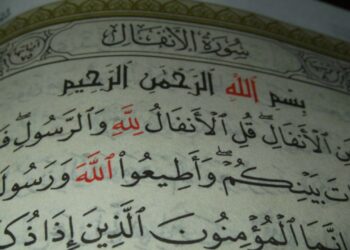 سُورَةُ الأَنفَالِ
بِسْمِ اللَّهِ الرَّحْمَٰنِ الرَّحِيمِ
الْأَنفَالِ ۖ قُلِ الْأَنفَالُ لِلَّهِ وَالرَّسُولِ ۖ
بَيْنِكُمْ ۖ وَأَطِيعُوا اللَّهَ وَرَسُولَ
الْمُؤْمِنُونَ الَّذِينَ إِذَا